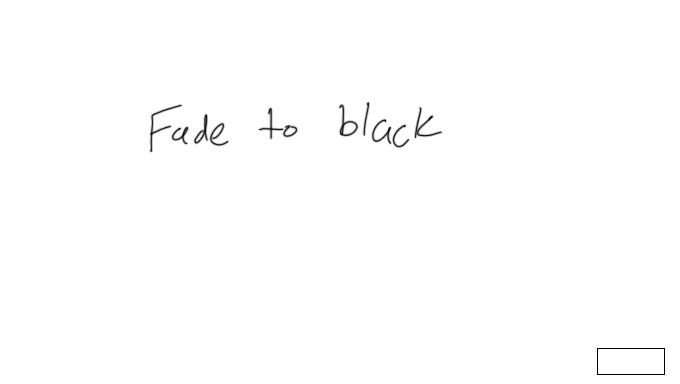 Fade to black